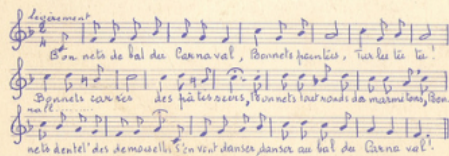 Légèrement
Bonnets de bal du Carnaval, Bonnets pointus, Turlu tu tu!
Bonnets carrés des pâtissiers, Bonnets tout ronds des marmitons, Bon
nets dentel' des demoiselles s'en vont danser, danser au bal du Carnaval!